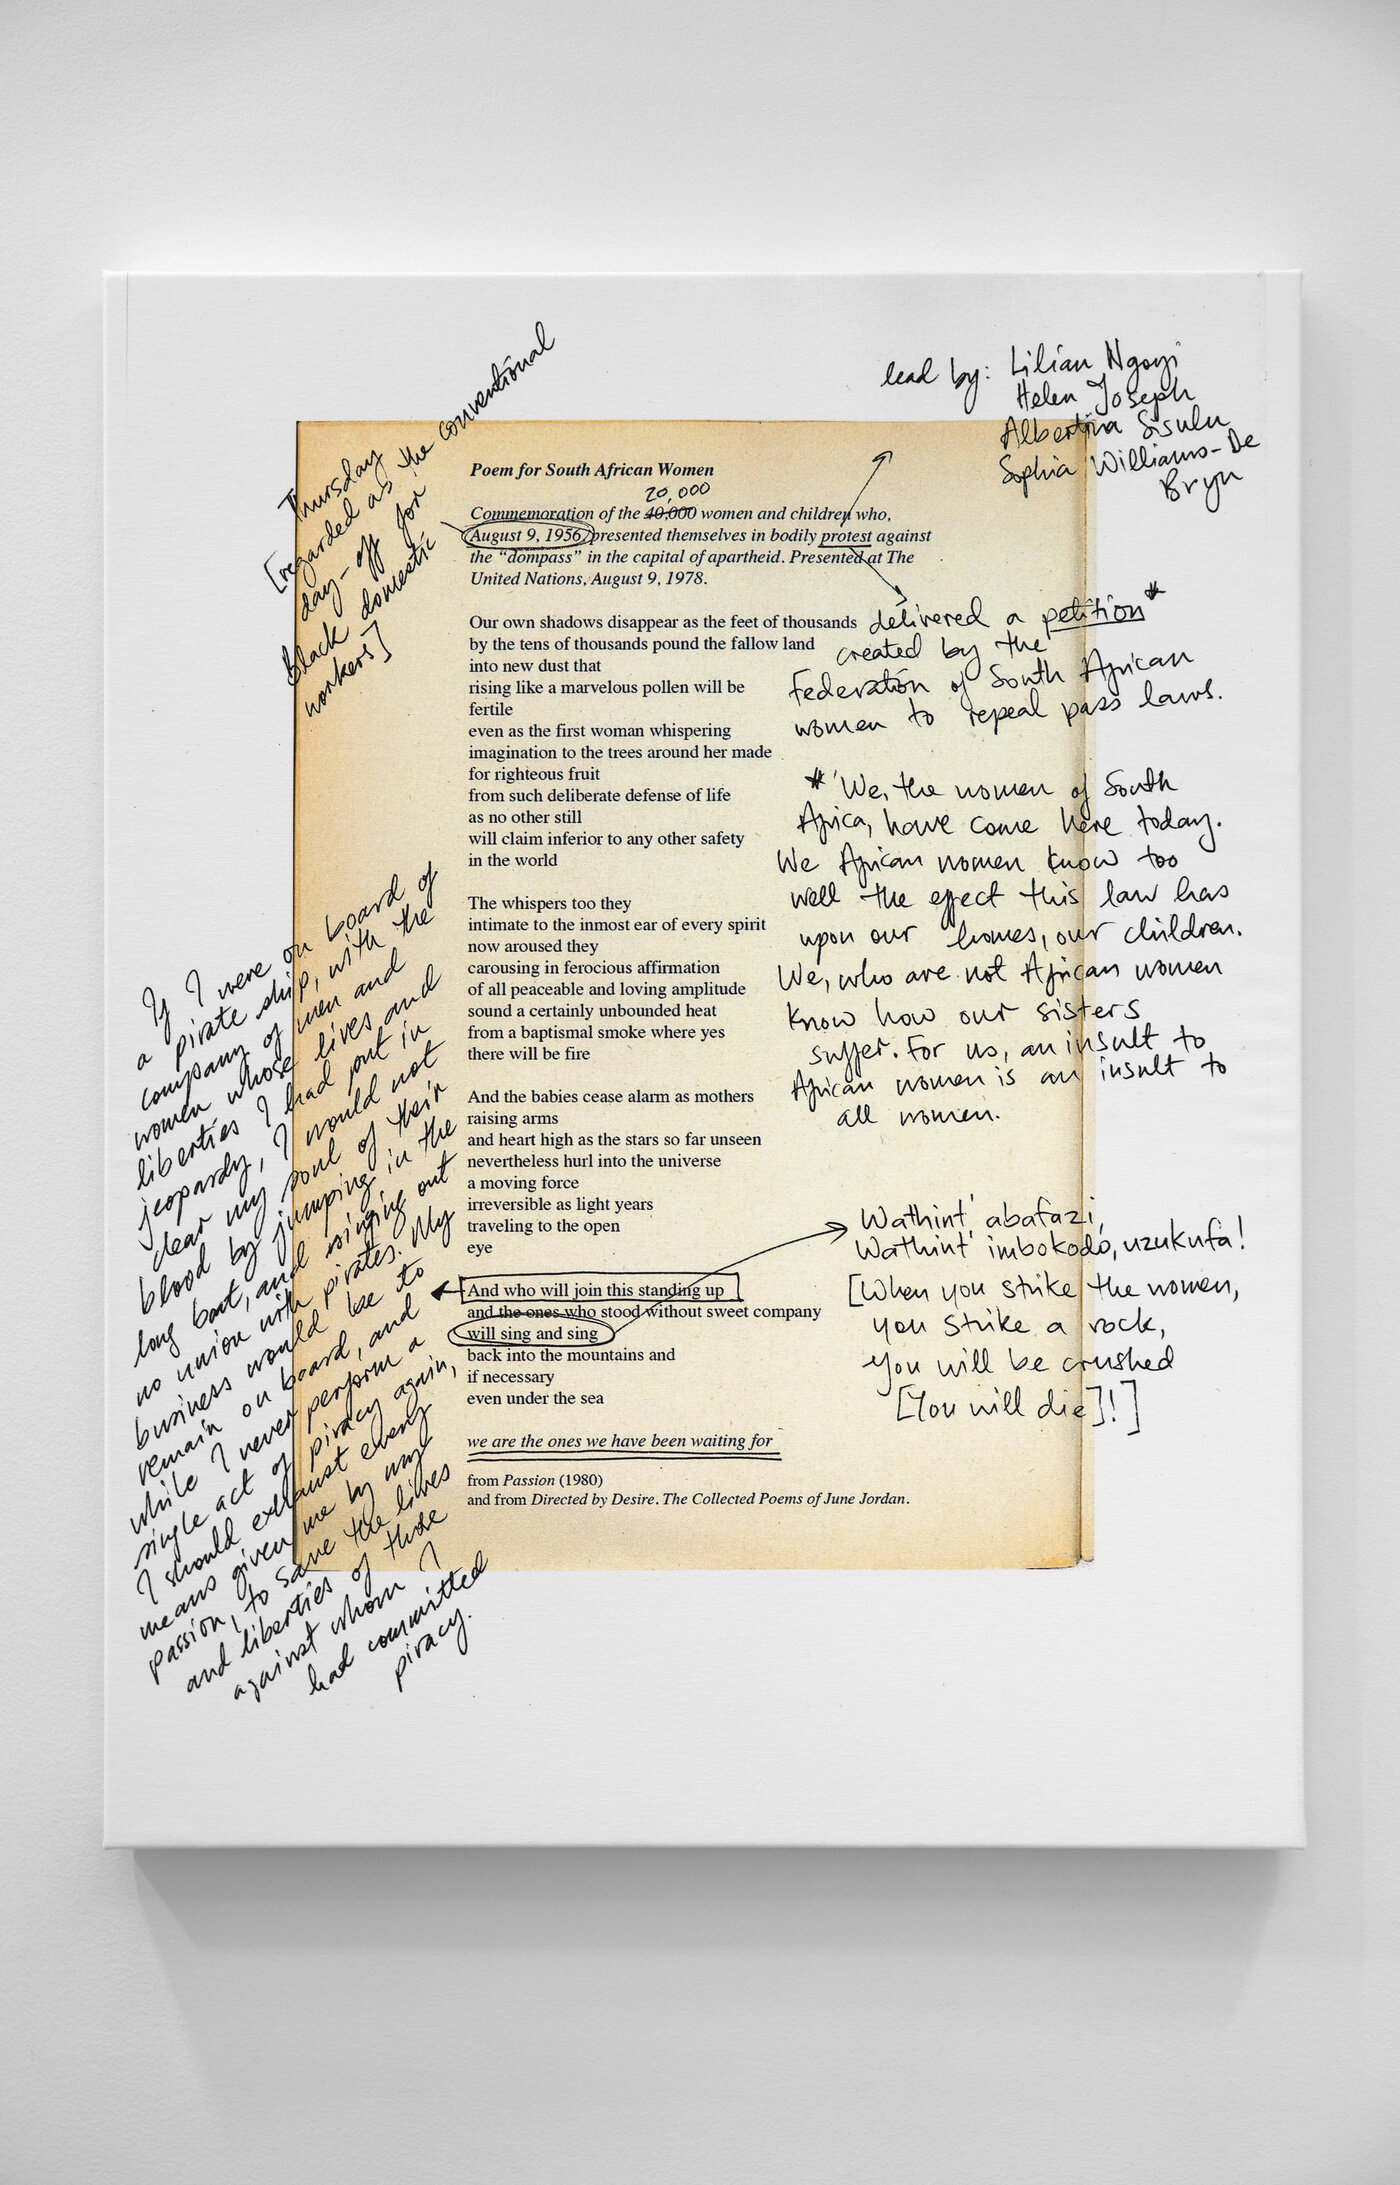 Thursday
[regarded as the conventional
day-off for
Black domestic
workers]
lead by: Lilian Ngoyi
Helen Joseph
Albertina Sisulu
Sophia Williams-De
Bryn
Poem for South African Women
20,000
Commemoration of the 40,000 women and children who,
August 9, 1956, presented themselves in bodily protest against
the “dompass” in the capital of apartheid. Presented at The
United Nations, August 9, 1978.
Our own shadows disappear as the feet of thousands
by the tens of thousands pound the fallow land
into new dust that
rising like a marvelous pollen will be
fertile
even as the first woman whispering
imagination to the trees around her made
for righteous fruit
from such deliberate defense of life
as no other still
will claim inferior to any other safety
in the world
The whispers too they
intimate to the inmost ear of every spirit
now aroused they
carousing in ferocious affirmation
of all peaceable and loving amplitude
sound a certainly unbounded heat
from a baptismal smoke where yes
there will be fire
And the babies cease alarm as mothers
raising arms
and heart high as the stars so far unseen
nevertheless hurl into the universe
a moving force
irreversible as light years
traveling to the open
eye
And who will join this standing up
and the ones who stood without sweet company
will sing and sing
back into the mountains and
if necessary
even under the sea
we are the ones we have been waiting for
from Passion (1980)
and from Directed by Desire. The Collected Poems of June Jordan.
delivered a petition*
created by the
Federation of South African
women to repeal pass laws.
* 'We, the women of South
Africa, have come here today.
We African women know too
well the effect this law has
upon our homes, our children.
We, who are not African women
know how our sisters
suffer. For us, an insult to
African women is an insult to
all women.
Wathint' abafazi,
Wathint' imbokodo, uzukufa!
[When you strike the women,
you strike a rock,
you will be crushed
[You will die]!]
If I were on board of
a pirate ship, with the
company of men and
women whose lives and
liberties I had put in
jeopardy, I would not
clear my soul of their
blood by jumping in the
long boat, and singing out
no union with pirates. My
business would be to
remain on board, and
while I never perform a
single act of piracy again,
I should exhaust every
means given me by my
passion, to save the lives
and liberties of those
against whom I
had committed
piracy.